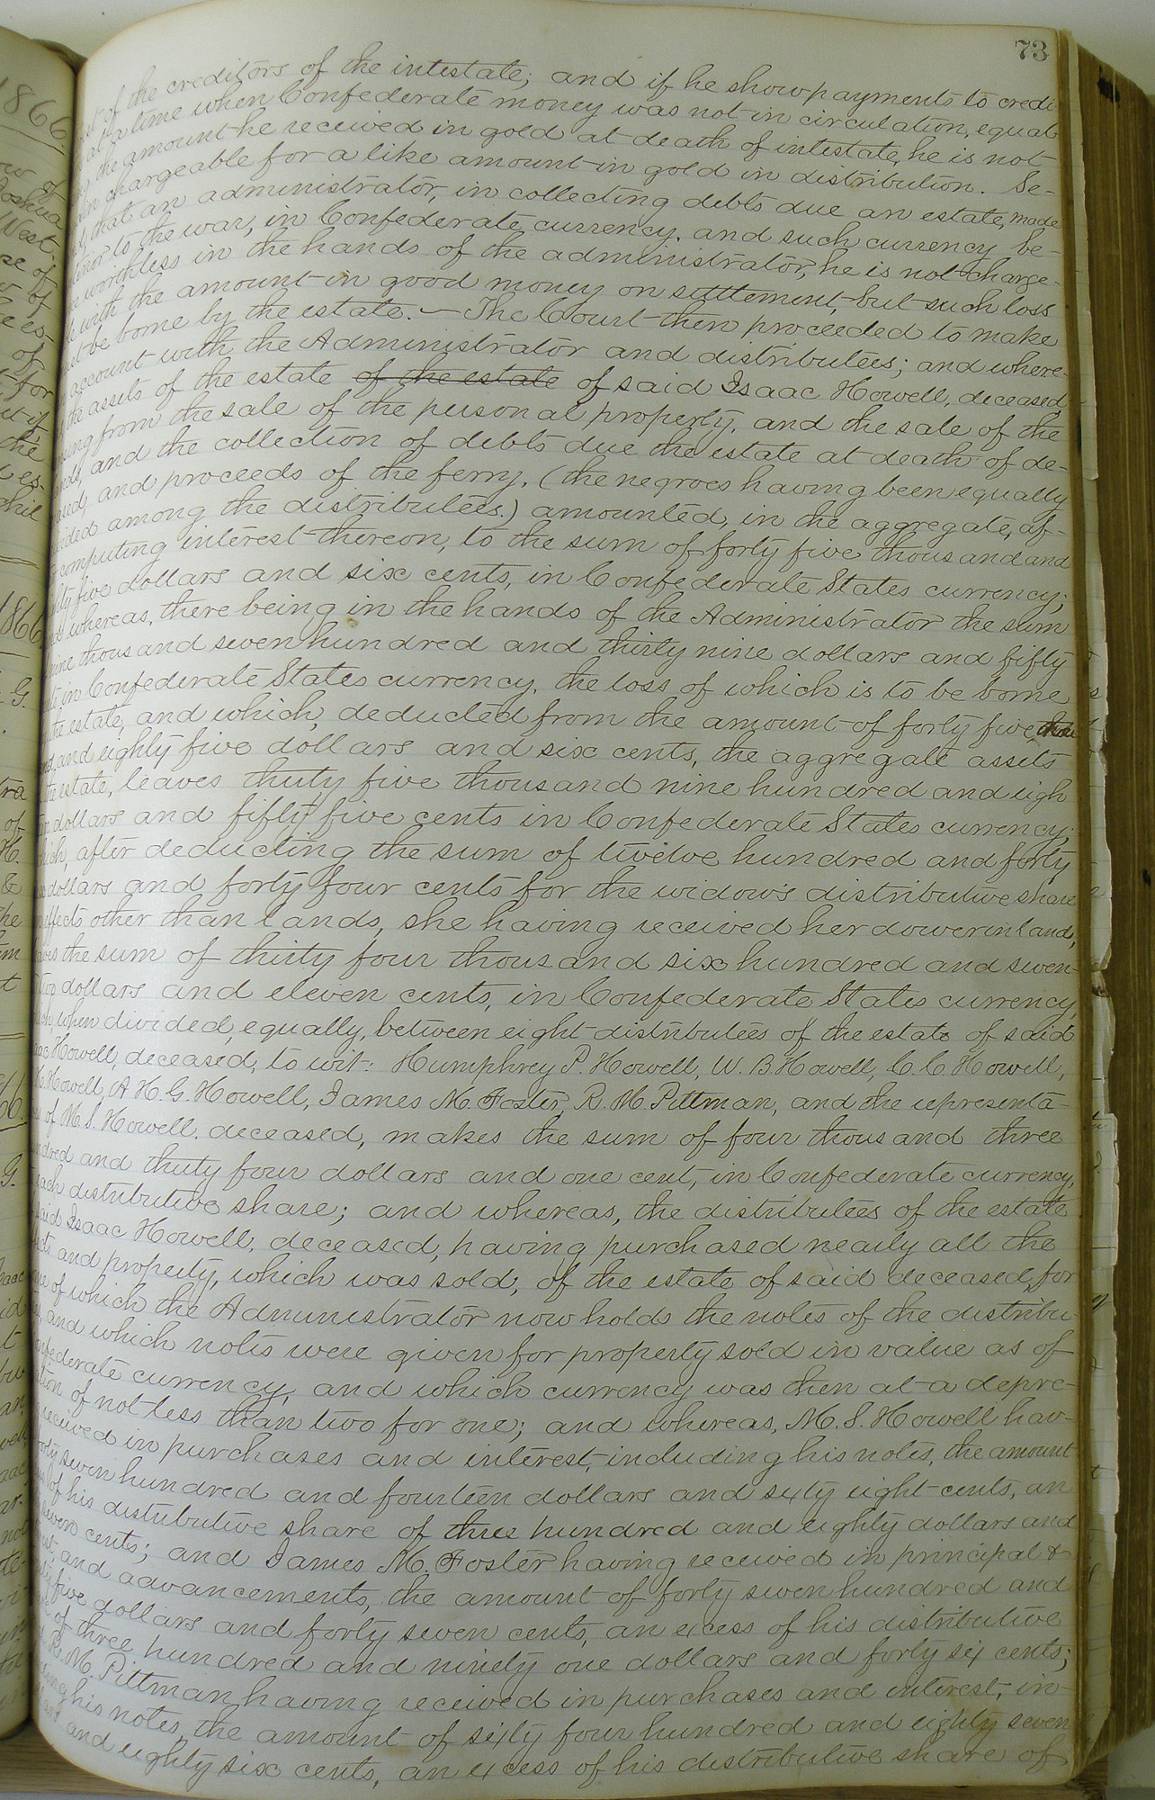 73
of the creditors of the intestate; and if he show payments to credi-
at a time when Confederate money was not in circulation, equal
the amount he received in gold at death of intestate, he is not
chargeable for a like amount in gold in distribution. Se-
that an administrator, in collecting debts due an estate, made
to the war, in Confederate currency, and such currency be-
worthless in the hands of the administrator, he is not charge-
with the amount in good money on settlement, but such loss
be borne by the estate. — The Court then proceeded to make
account with the Administrator and distributees; and where-
the assets of the estate of the estate of said Isaac Howell, deceased
from the sale of the personal property, and the sale of the
and the collection of debts due the estate at death of de-
and proceeds of the ferry, (the negroes having been equally
among the distributees.) amounted, in the aggregate, af-
computing interest thereon, to the sum of forty five thousand and
five dollars and six cents, in Confederate States currency;
whereas, there being in the hands of the Administrator the sum
nine thousand seven hundred and thirty nine dollars and fifty
in Confederate States currency, the loss of which is to be borne
the estate, and which, deducted from the amount of forty five thou
and eighty five dollars and six cents, the aggregate assets
estate, leaves thirty five thousand nine hundred and eigh
dollars and fifty five cents in Confederate States currency;
after deducting the sum of twelve hundred and forty
dollars and forty four cents for the widow's distributive share
effects other than lands, she having received her dower in land,
the sum of thirty four thousand six hundred and seven-
dollars and eleven cents, in Confederate States currency,
when divided, equally, between eight distributees of the estate of said
Howell, deceased, to wit: Humphrey P. Howell, W. B. Howell, C. C. Howell,
Howell, A. H. G. Howell, James M. Foster, R. M. Pittman, and the representa-
of M. S. Howell, deceased, makes the sum of four thousand three
and thirty four dollars and one cent, in Confederate currency,
each distributive share; and whereas, the distributees of the estate
said Isaac Howell, deceased, having purchased nearly all the
and property, which was sold, of the estate of said deceased, for
of which the Administrator now holds the notes of the distribu
and which notes were given for property sold in value as of
currency, and which currency was then at a depre-
of not less than two for one; and whereas, M. S. Howell hav-
received in purchases and interest, including his notes, the amount
seven hundred and fourteen dollars and sixty eight cents, an
of his distributive share of three hundred and eighty dollars and
cents; and James M. Foster having received in principal &
and advancements, the amount of forty seven hundred and
five dollars and forty seven cents, an excess of his distributive
of three hundred and ninety one dollars and forty six cents;
R. M. Pittman having received in purchases and interest, in-
his notes, the amount of sixty four hundred and eighty seven
and eighty six cents, an excess of his distributive share of